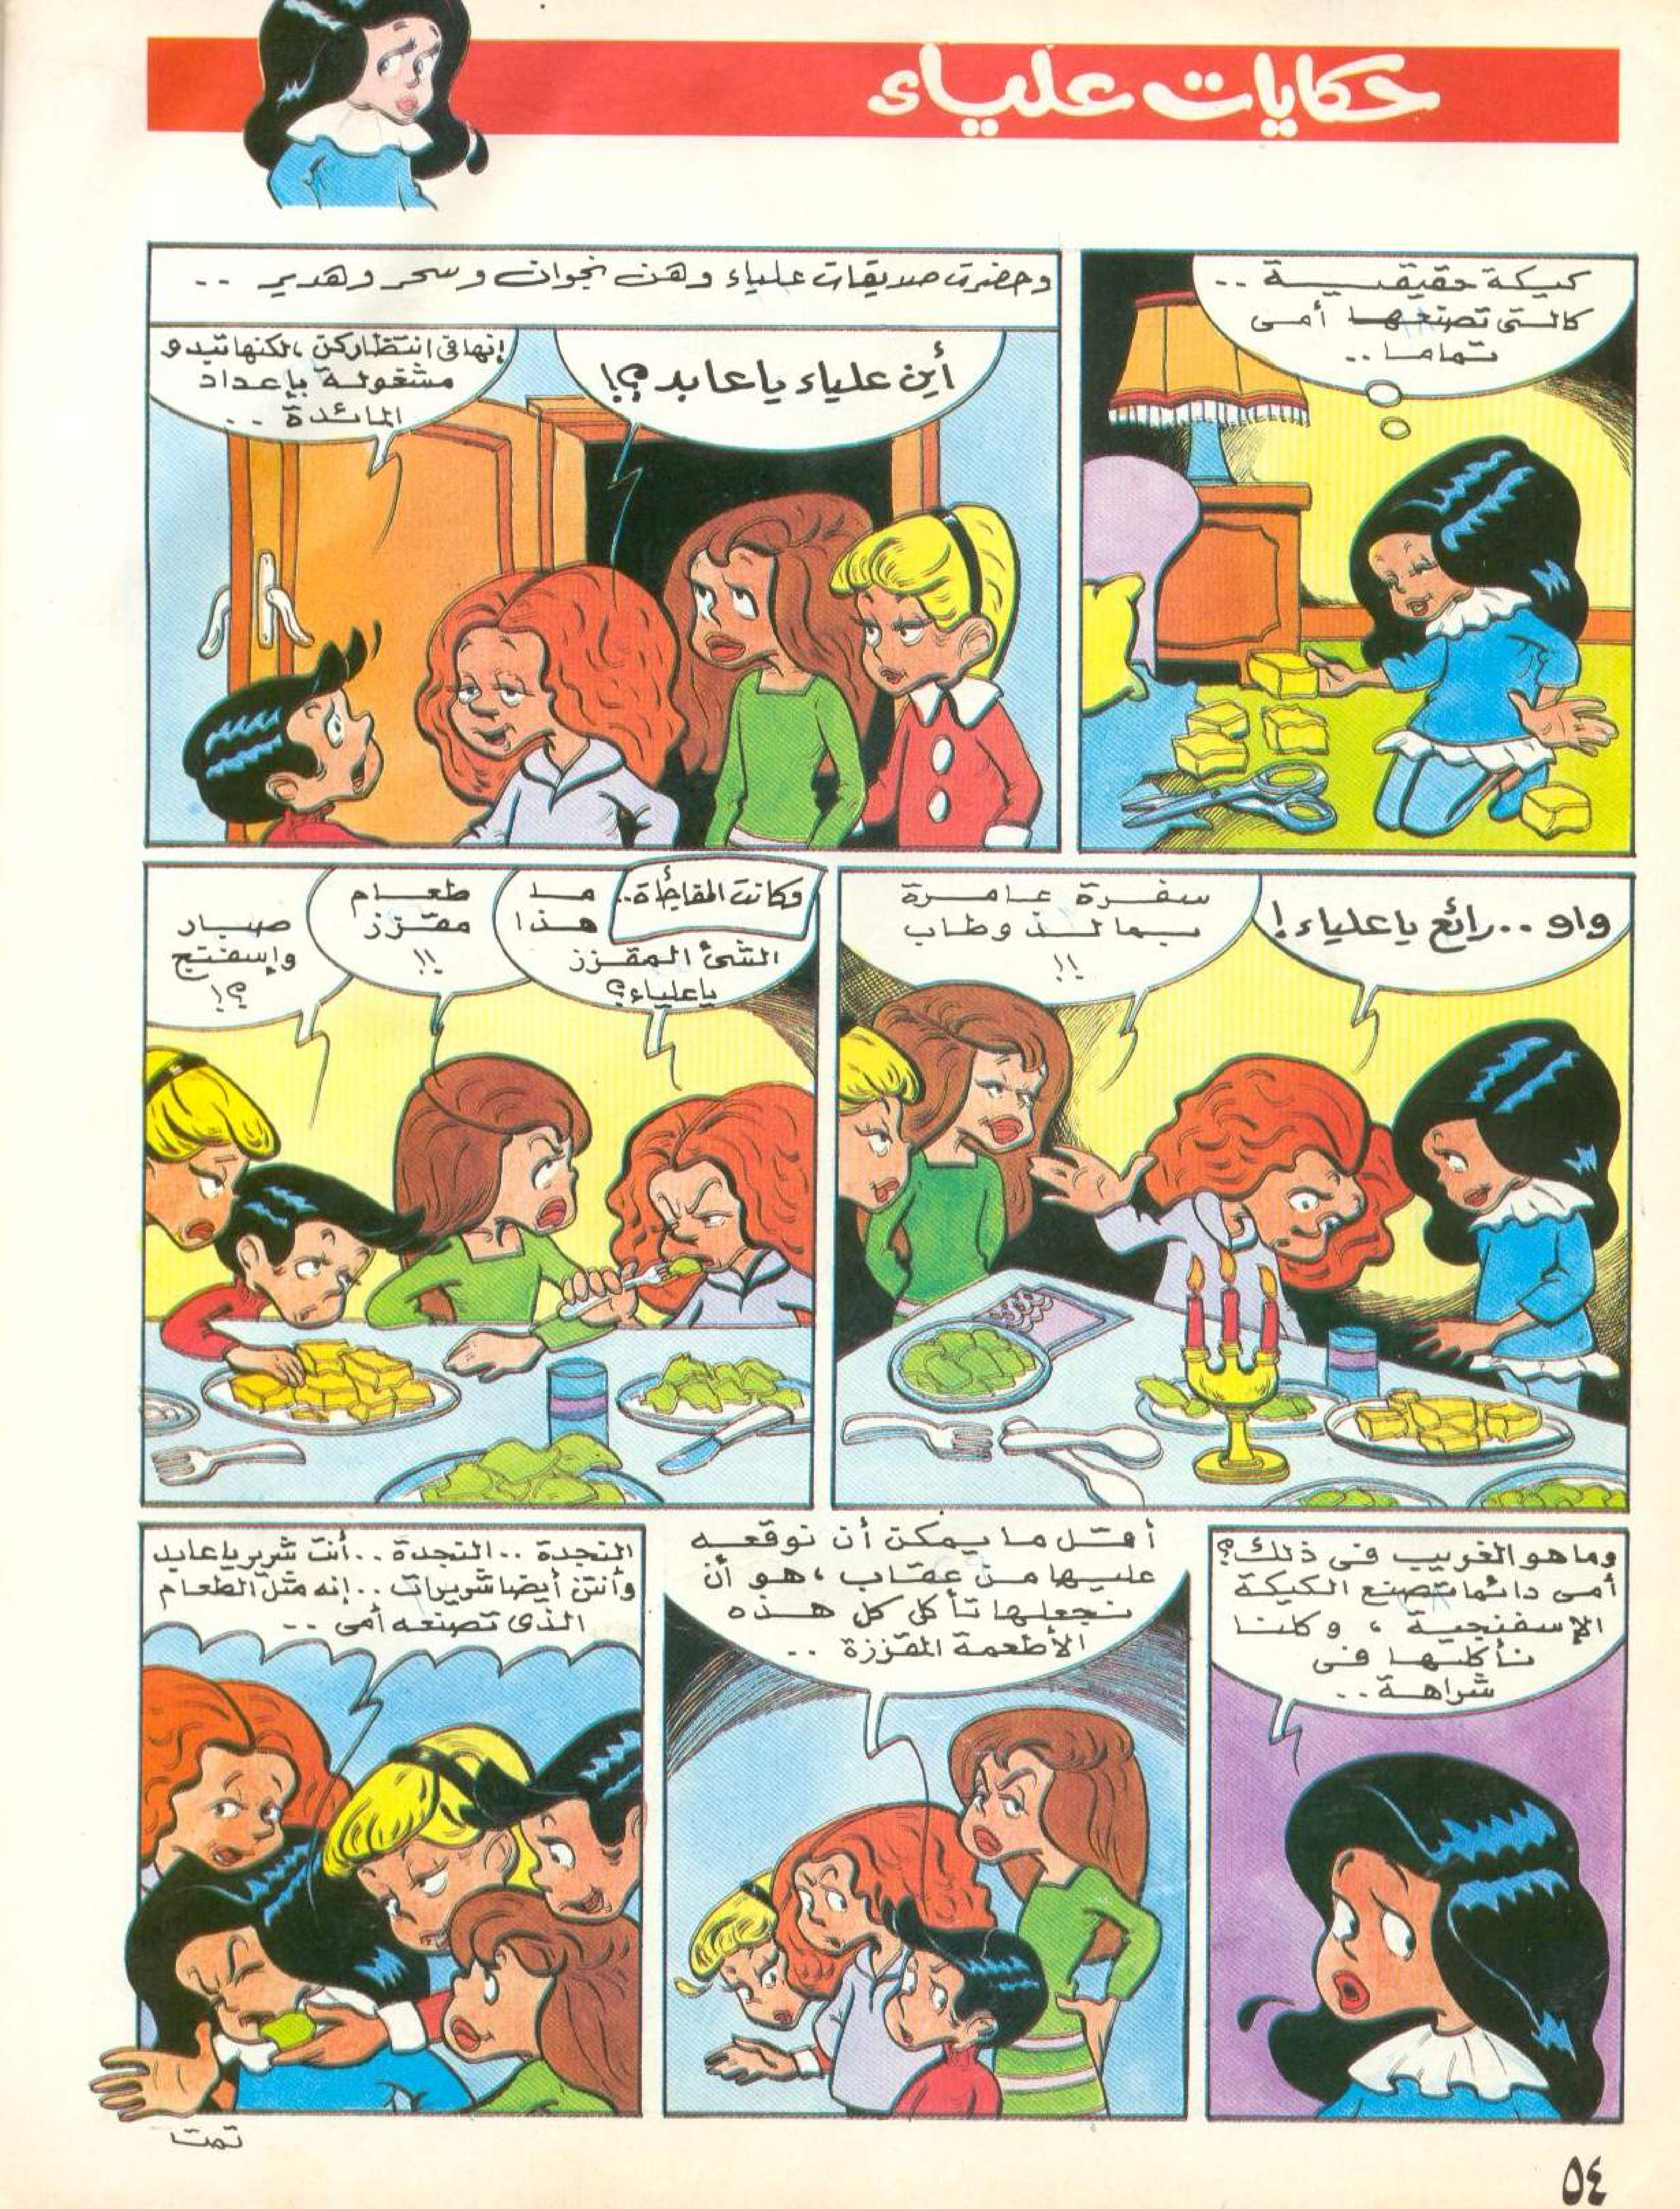 حكايات علياء
كيكة حقيقية ..
كالتى تصنعها أمى
تماما ..
وحضرت صديقات علياء وهن نجوان وسحر وهدير ..
أين علياء ياعابد ؟!
إنها فى انتظاركن ، لكنها تبدو
مشغولة بإعداد
المائدة ..
واو .. رائع ياعلياء !
سفرة عامرة
بما لذ وطاب
!!
وكانت المفاجأة ..
ما
هذا
الشئ المقزز
ياعلياء ؟
طعام
مقزز
!!
صبار
وإسفنج
؟!
وما هو الغريب فى ذلك ؟
أمى دائما تصنع الكيكة
الإسفنجية ، وكلنا
نأكلها فى
شراهة ..
أقل ما يمكن أن نوقعه
عليها من عقاب ، هو أن
نجعلها تأكل كل هذه
الأطعمة المقززة ..
النجدة .. النجدة .. أنت شرير ياعابد
وأنتن أيضا شريرات .. إنه مثل الطعام
الذى تصنعه أمى ..
تمت
٥٤